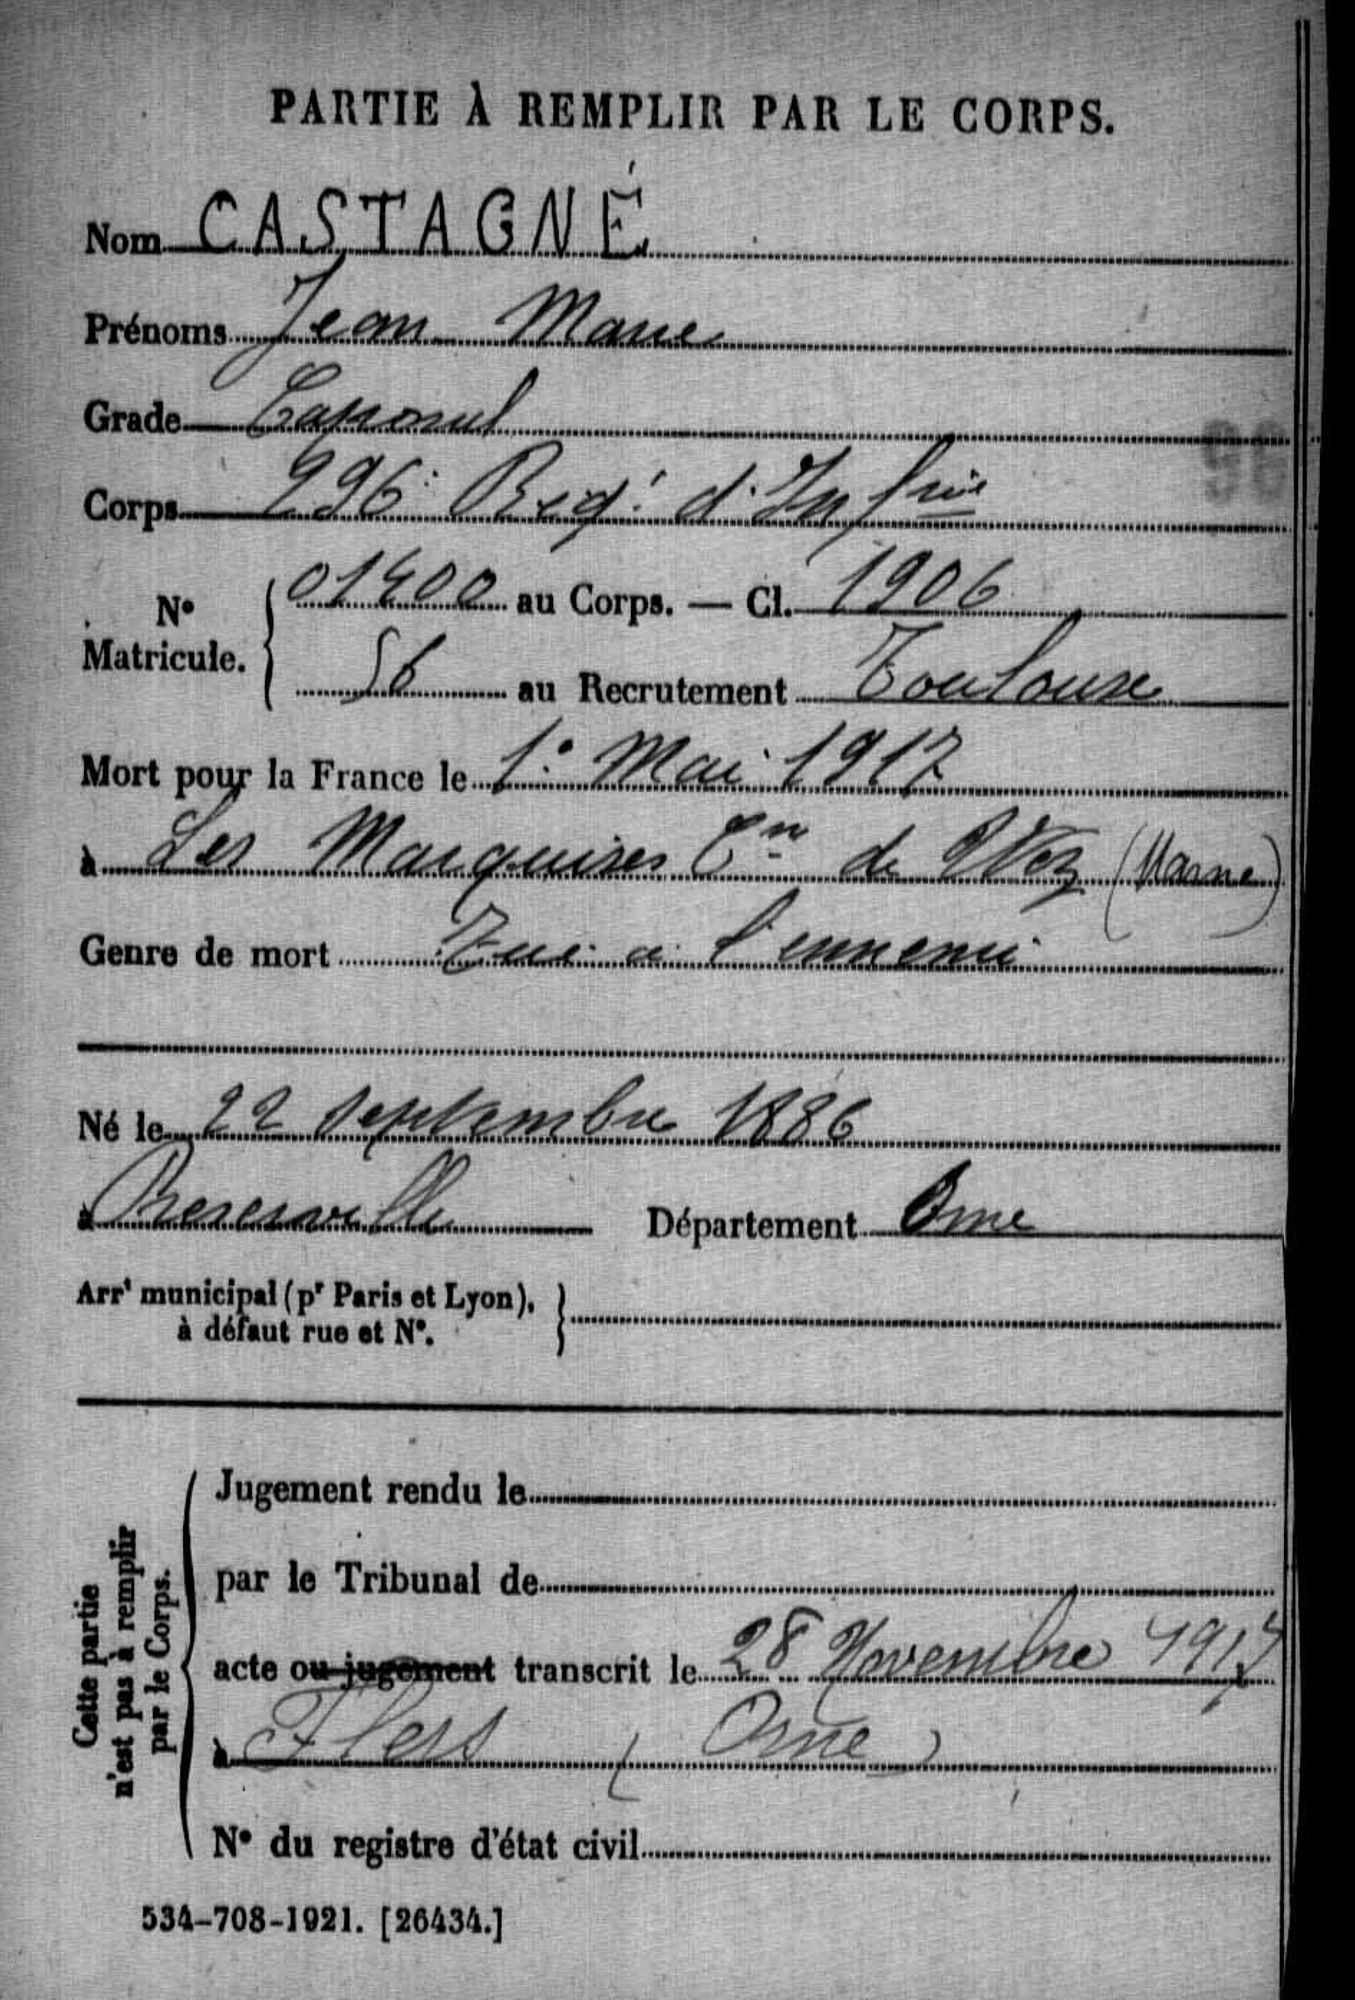 PARTIE À REMPLIR PAR LE CORPS.
Nom CASTAGNÉ
Prénoms Jean Marie
Grade Caporal
Corps 296e Regt d'Infrie
96
No Matricule. { 01400 au Corps. — Cl. 1906
56 au Recrutement Toulouse
Mort pour la France le 1er Mai 1917
à Les Marquises Cn de Wez (Marne)
Genre de mort Tué à l'ennemi
Né le 22 septembre 1886
à Département Orne
Arrt municipal (pr Paris et Lyon), }
à défaut rue et No.
Cette partie
n'est pas à remplir
par le Corps.
Jugement rendu le
par le Tribunal de
acte ou jugement transcrit le 28 Novembre 1917
à Flers (Orne)
No du registre d'état civil
534-708-1921. [26434.]